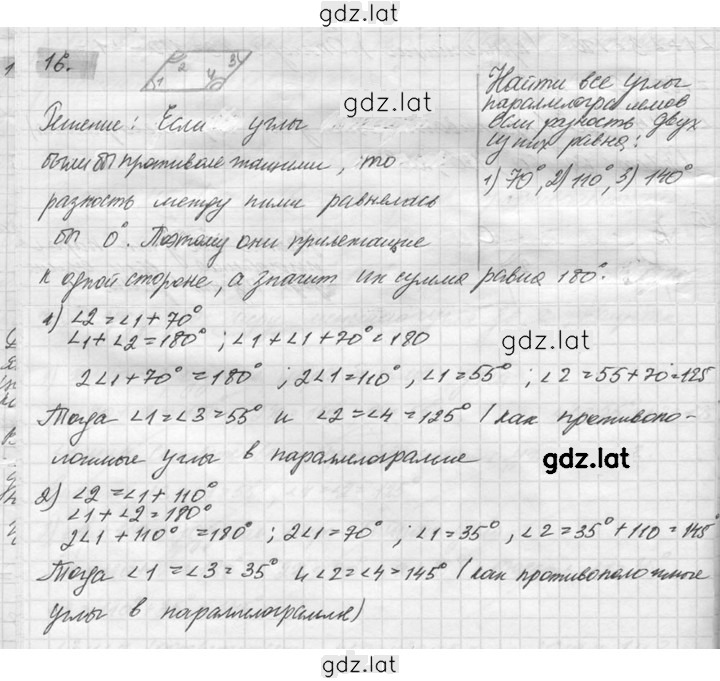 gdz.lat
16.
1 2 3 4
Найти все углы
параллелограммов
если разность двух
из них равна:
1) 70°, 2) 110°, 3) 140°
gdz.lat
Решение: Если углы
были бы противолежащими, то
разность между ними равнелась
бы 0°. Поэтому они прилежащие
к одной стороне, а значит их сумма равна 180°.
1) ∠2 = ∠1 + 70°
∠1 + ∠2 = 180° ; ∠1 + ∠1 + 70° = 180
gdz.lat
2∠1 + 70° = 180° ; 2∠1 = 110° , ∠1 = 55° ; ∠2 = 55 + 70 = 125
Тогда ∠1 = ∠3 = 55° и ∠2 = ∠4 = 125° (как противопо-
ложные углы в параллелограмме
gdz.lat
2) ∠2 = ∠1 + 110°
∠1 + ∠2 = 180°
2∠1 + 110° = 180° ; 2∠1 = 70° ; ∠1 = 35° , ∠2 = 35° + 110 = 145°
Тогда ∠1 = ∠3 = 35° и ∠2 = ∠4 = 145° (как противоположные
углы в параллелограмме)
gdz.lat